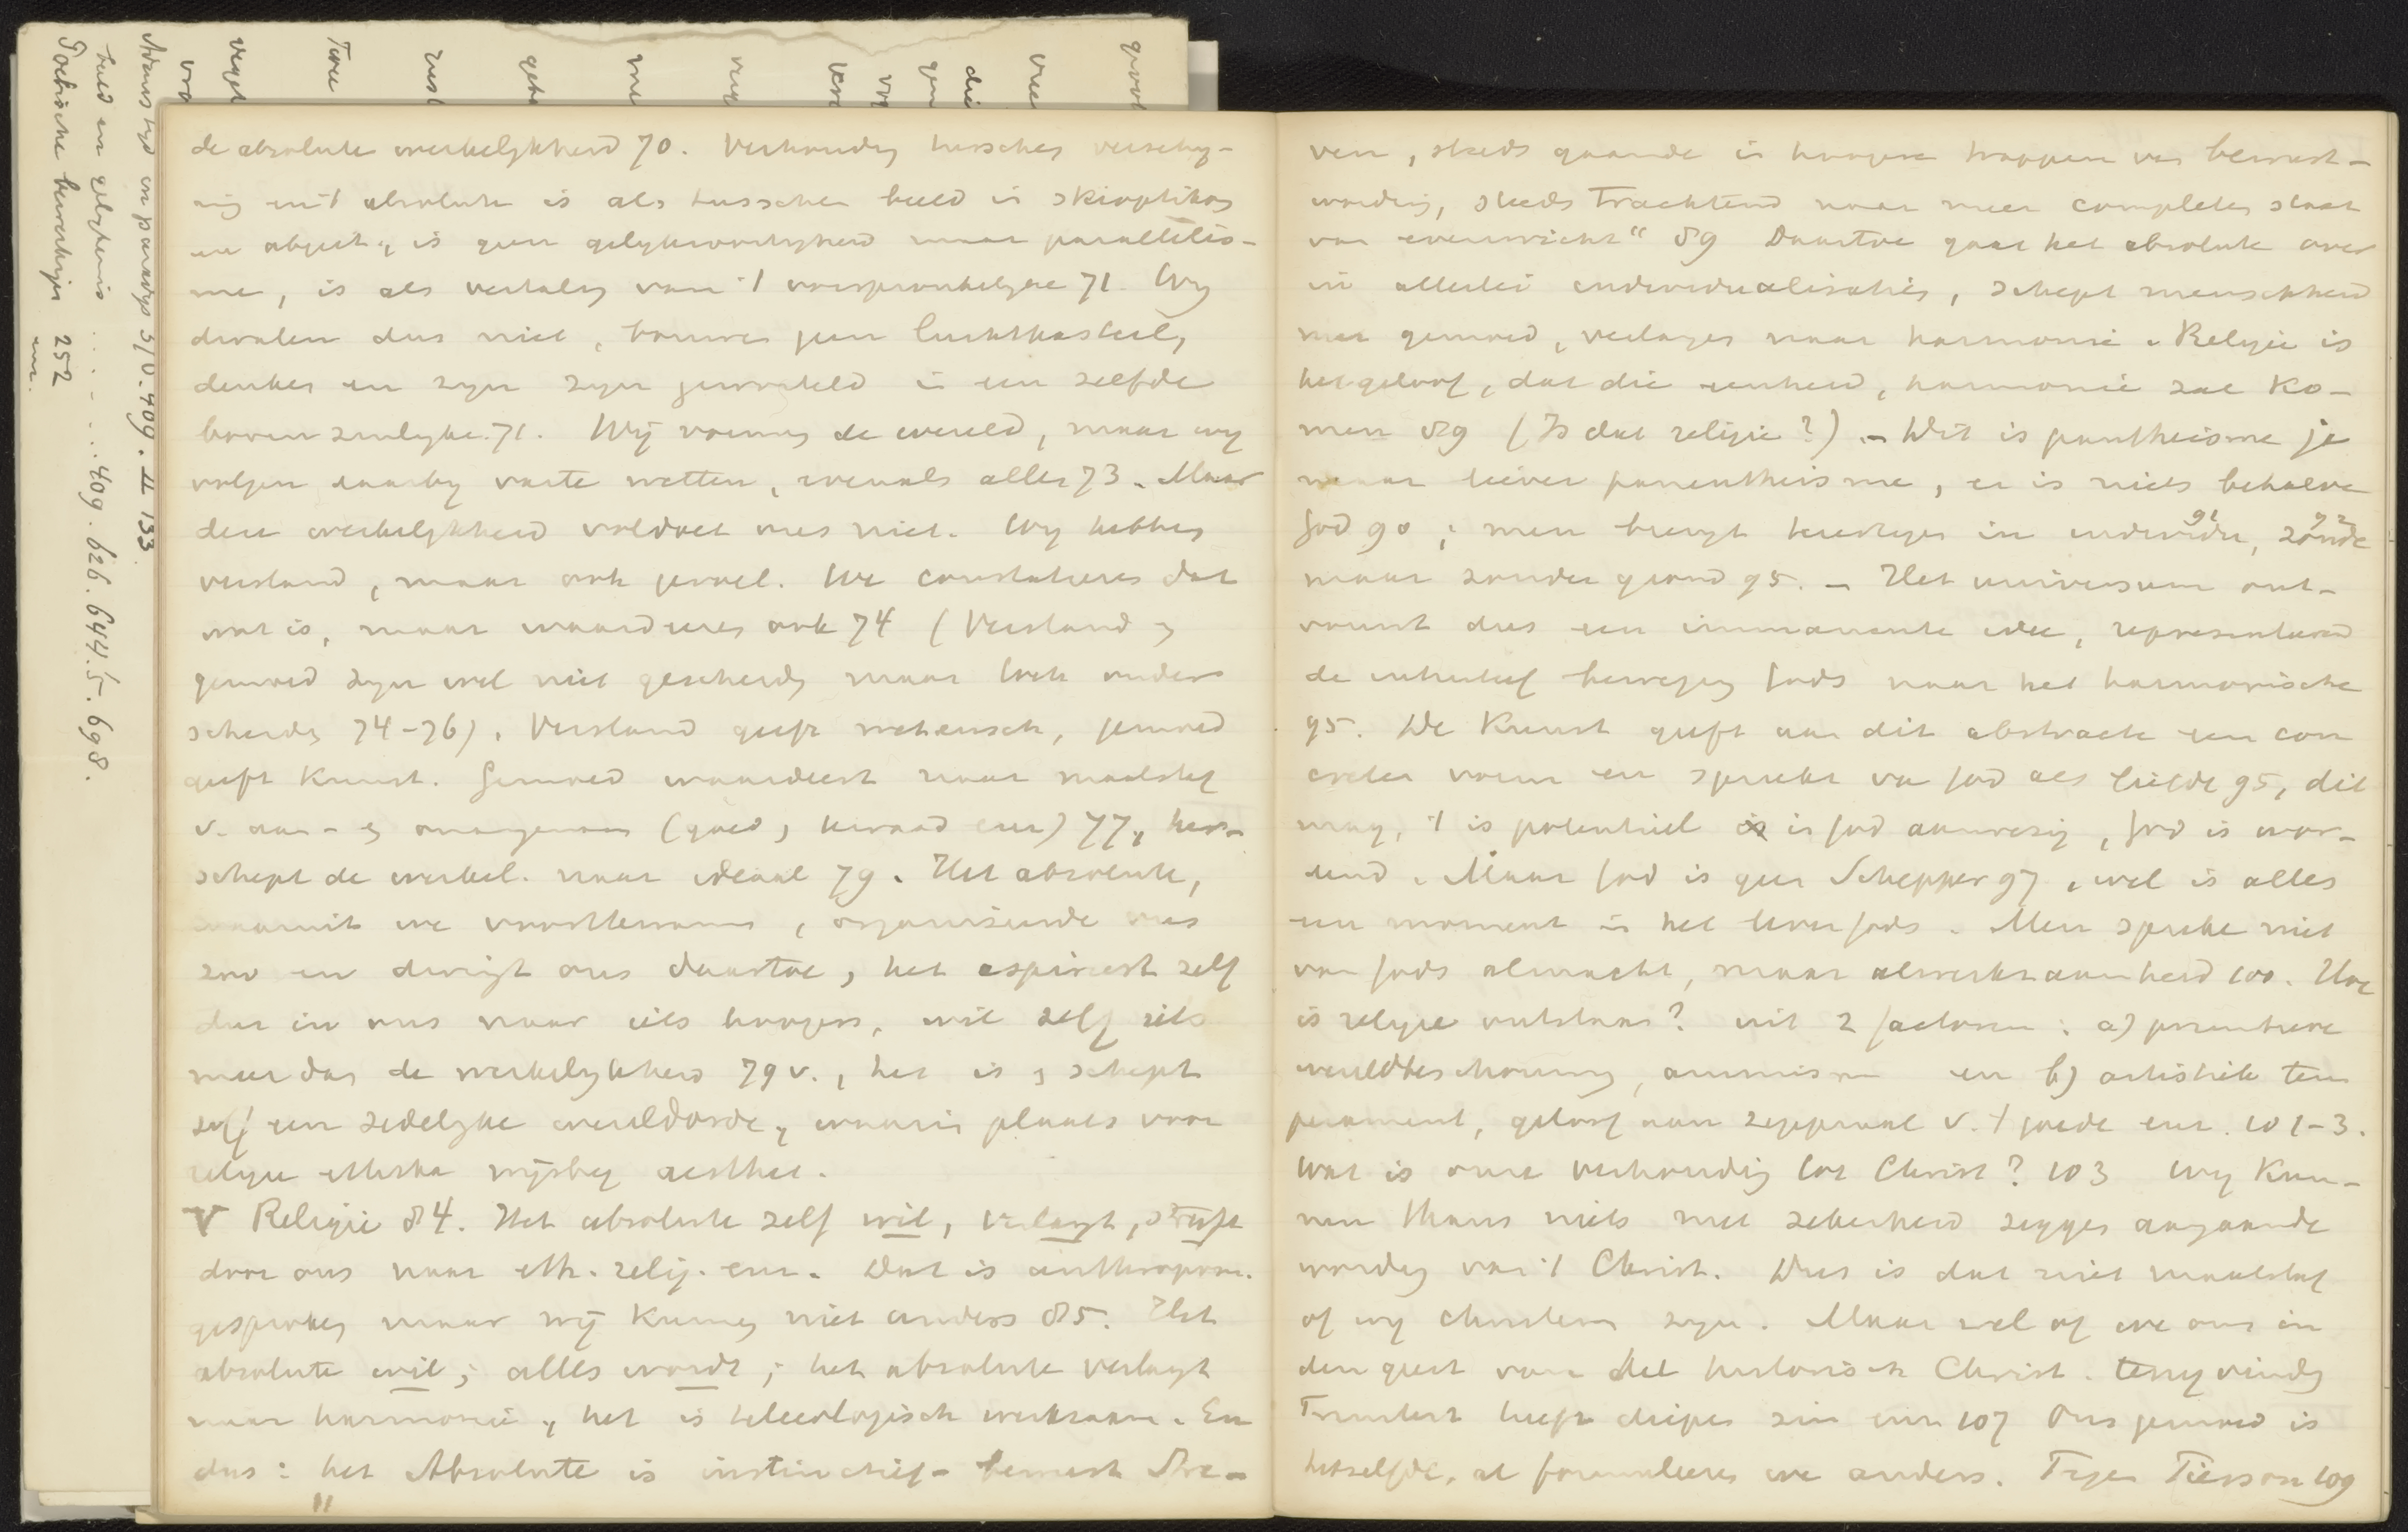 de absolute werkelykheid 70. Verhouding tusschen verschy-
ning en 't absolute is als tusschen beeld in skioptikon
en object, is geen gelykvormigheid maar parallelis-
me, is als vertaling van 't oorspronkelyke 71. Wy
dwalen dus niet, bouwen geen luchtkasteel,
denken en zyn zyn geworteld in een zelfde
bovenzinlyke. 71. Wij vormen de wereld, maar wy
volgen daarby vaste wetten, evenals alles 73. Maar
deze werkelykheid voldoet ons niet. Wy hebben
verstand, maar ook gevoel. We constateeren dat
wat is, maar waardeeren ook 74 (Verstand &
gemoed zyn wel niet gescheiden maar toch onder-
scheiden 74-76). Verstand geeft wetensch, gemoed
geeft Kunst. Gemoed waardeert naar maatstaf
v. aan- & onaangenaam (goed, kwaad enz) 77, her-
schept de werkel. naar ideaal 79. Het absolute,
waaruit we voortkwamen, organiseerde ons
zoo en dwingt ons daartoe, het aspireert zelf
dus in ons naar iets hoogers, wil zelf iets
meer dan de werkelykheid 79 v., het is & schept
zelf een zedelyke wereldorde, waarin plaats voor
religie ethika wijsbeg aesthet.
V Religie 84. Het absolute zelf wil, verlangt, streeft
door ons naar eth. relig. enz. Dat is anthropom.
gesproken maar wij kunnen niet anders 85. Het
absolute wil; alles wordt; het absolute verlangt
naar harmonie, het is teleologisch werkzaam. En
dus: het Absolute is „instinctief-bewust Stre-
ven, steeds gaande in hoogere trappen van bewust-
wording, steeds Trachtend naar meer compleeten staat
van evenwicht“ 89 Daartoe gaat het absolute over
in allerlei individualisatie, schept menschheid
met gemoed, verlangen naar harmonie. Religie is
het geloof, dat die eenheid, harmonie zal Ko-
men 89 (Is dat religie?). – Dit is pantheisme ja
maar liever panentheisme, er is niets behalve
God 90; men brengt bedenkingen in individu, 91 zonde 92
maar zonder grond 95. – Het universum ont-
vouwt dus een immanente idee, representeerend
de intuitief beweging Gods naar het harmonische
95. De Kunst geeft aan dit abstracte een con
creten vorm en spreekt van God als liefde 95, dit
mag, 't is potentieel in God aanwezig, God is wor-
dend. Maar God is geen Schepper 97, wel is alles
een moment in het leven Gods. Men spreke niet
van Gods almacht, maar alwerkzaamheid 100. Hoe
is religie ontstaan? uit 2 factoren: a) primitieve
wereldbeschouwing, animisme en b) artistiek tem
perament, geloof aan zegepraal v. 't goede enz. 101-3.
Wat is onze verhouding tot Christ? 103 Wy Kun-
nen thans niets met zekerheid zeggen aangaande
wording van 't Christ. Dus is dat niet maatstaf
of wy christenen zyn. Maar wel of we ons in
den geest van het historisch Christ. terugvinden
Troeltsch heeft dieper zin enz 107 Ons gemoed is
hetzelfde, al formuleeren we anders. Tegen Pierson 109
Poëtische bewerkingen 252
enz.
beeld en gelykenis ........ 409. 626. 644. 5. 698.
Adams tyd in paradys 370. 409. II 133